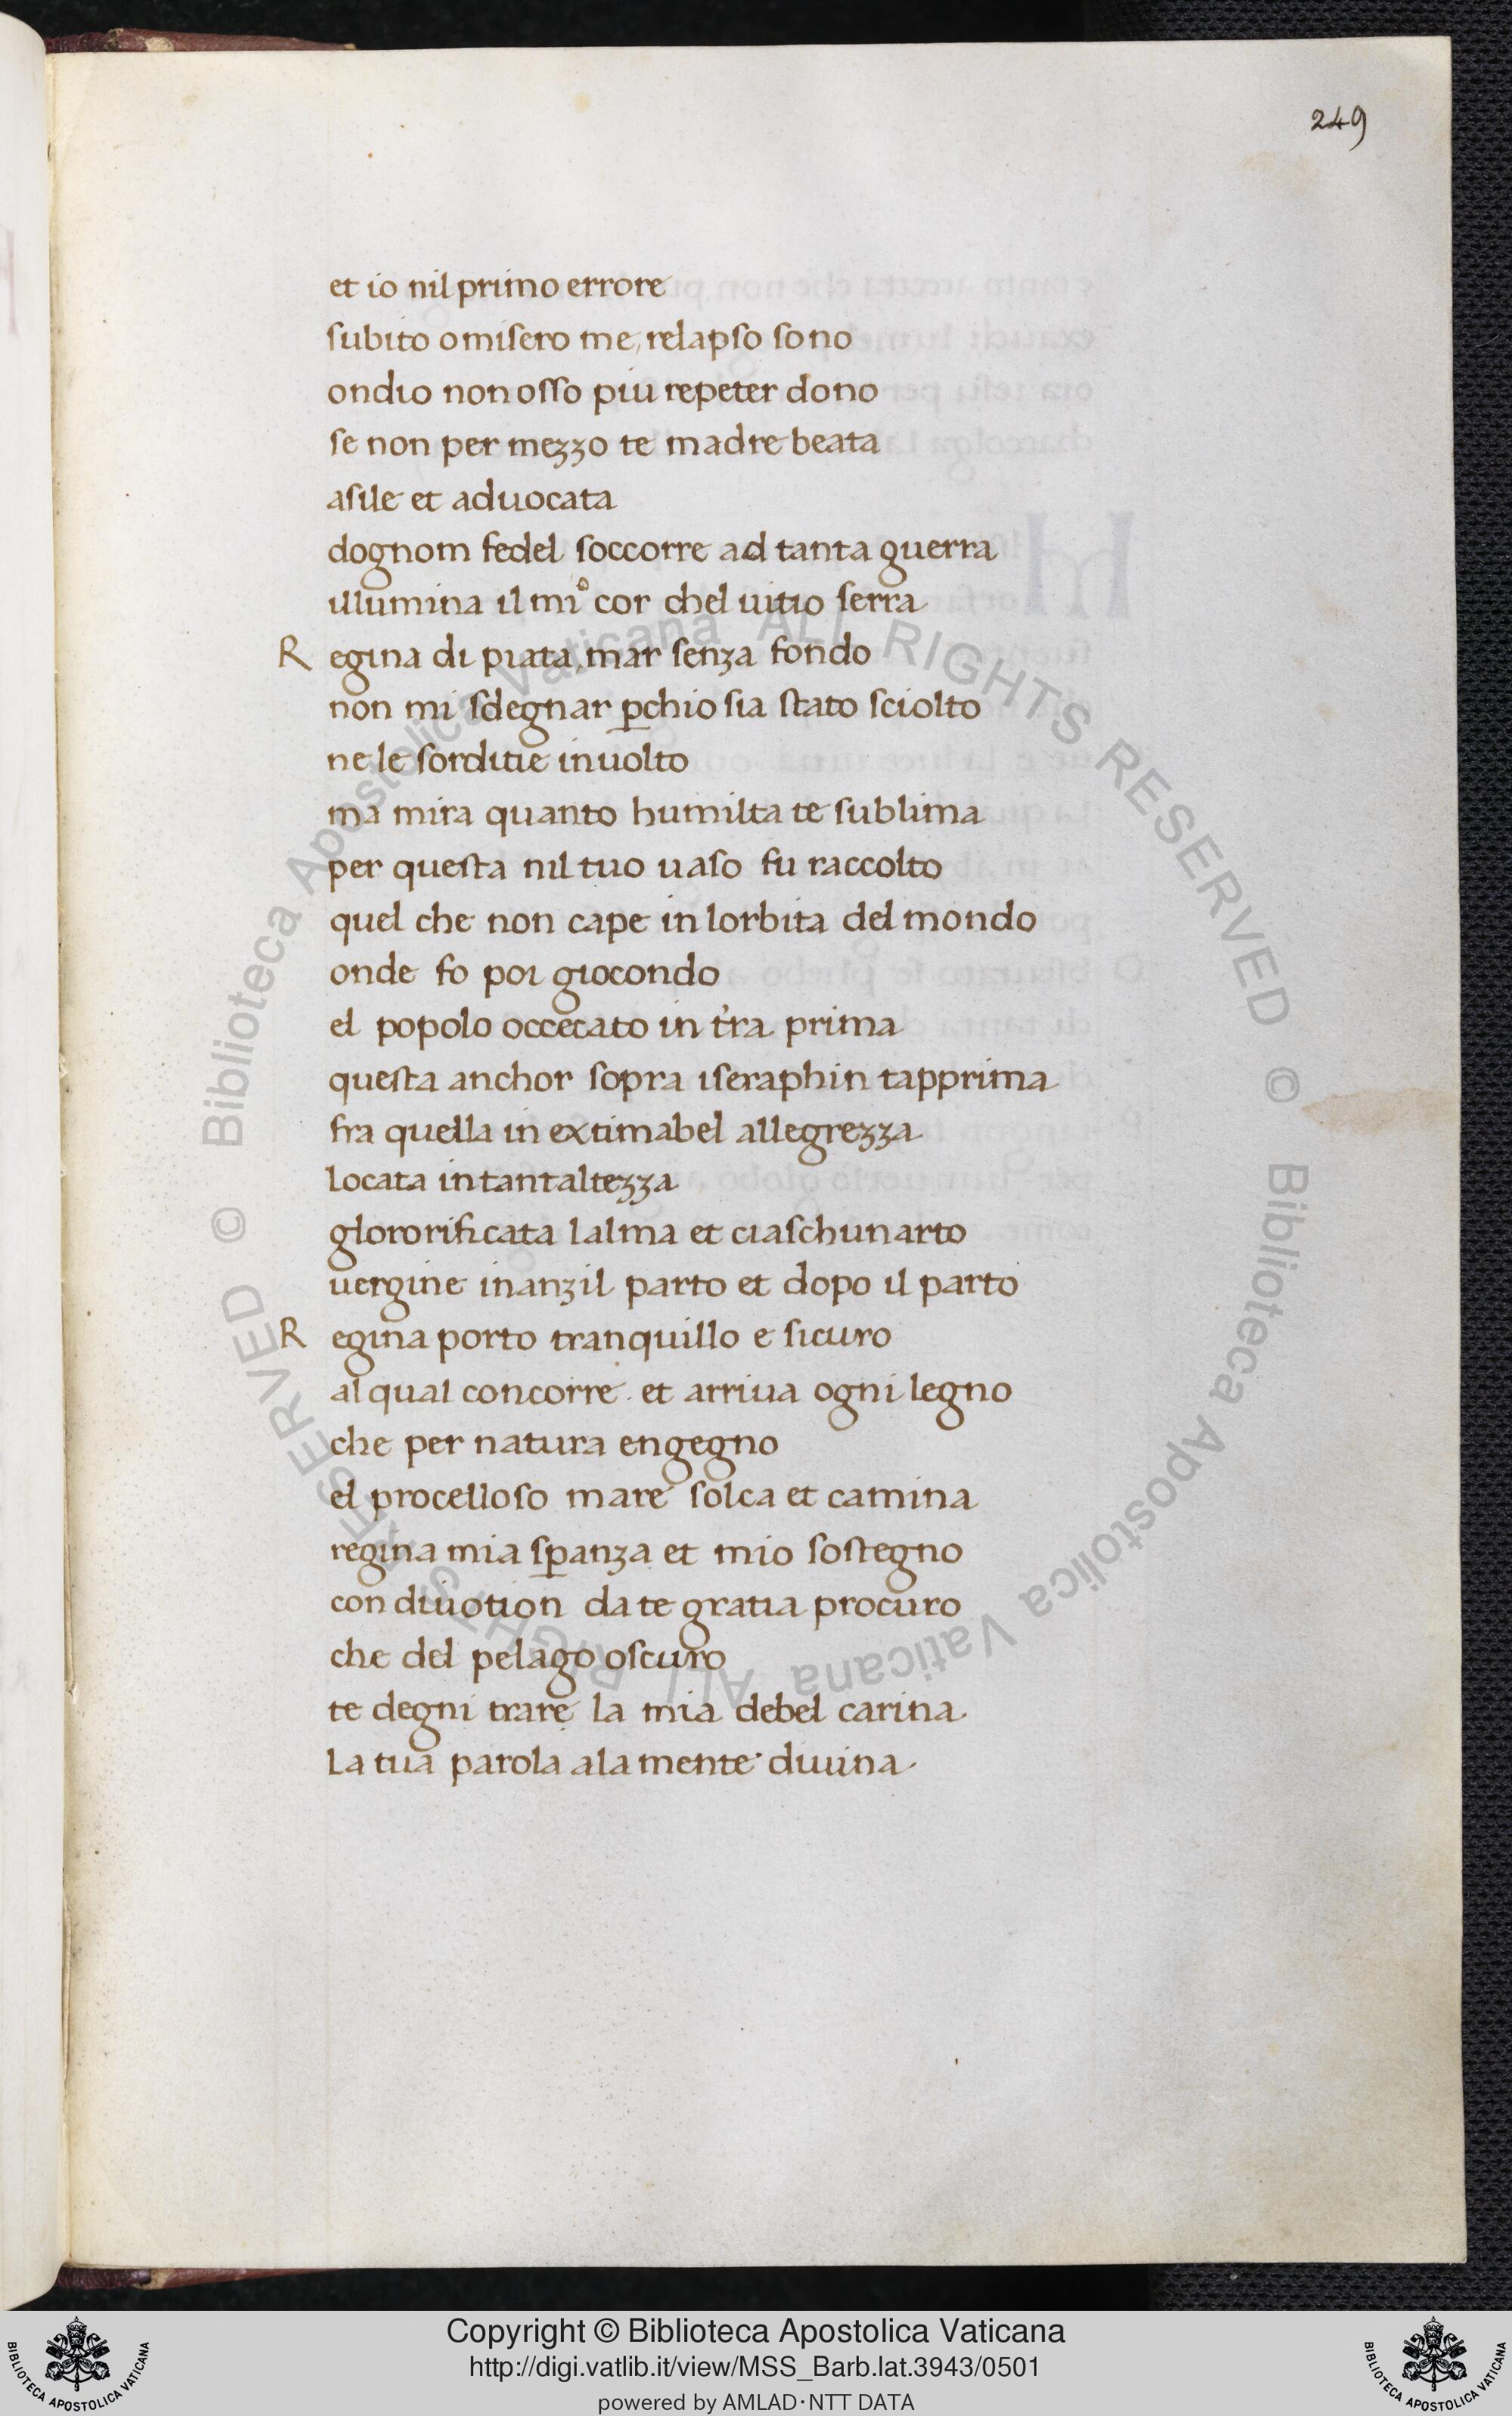 249
et io nil primo errore
subito o misero me, relapso sono
ondio non osso piu repeter dono
se non per mezzo te madre beata
asile et aduocata
dognom fedel soccorre ad tanta guerra
illumina il mi° cor chel uitio serra
R egina di piata, mar senza fondo
non mi sdegnar ꝑchio sia stato sciolto
ne le sorditie inuolto
ma mira quanto humilta te sublima
per questa nil tuo uaso fu raccolto
quel che non cape in lorbita del mondo
onde fo poi giocondo
el popolo occecato in t'ra prima
questa anchor sopra iseraphin tapprima
fra quella in extimabel allegrezza
locata in tantaltezza
glororificata lalma et ciaschunarto
uergine inanzil parto et dopo il parto
R egina porto tranquillo e sicuro
al qual concorre. et arriua ogni legno
che per natura engegno
el procelloso mare solca et camina
regina mia sꝑanza et mio sostegno
con diuotion da te gratia procuro
che del pelago oscuro
te degni trare la mia debel carina.
La tua parola a la mente diuina.
Copyright © Biblioteca Apostolica Vaticana
http://digi.vatlib.it/view/MSS_Barb.lat.3943/0501
powered by AMLAD·NTT DATA
BIBLIOTECA APOSTOLICA VATICANA
BIBLIOTECA APOSTOLICA VATICANA
© Biblioteca Apostolica Vaticana ALL RIGHTS RESERVED
© Biblioteca Apostolica Vaticana ALL RIGHTS RESERVED